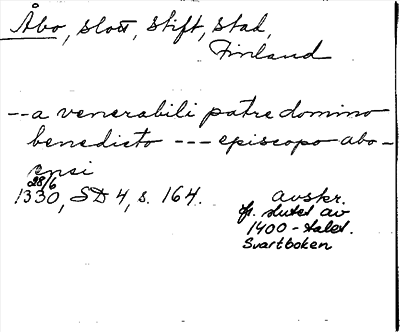 Åbo, slott, stift, stad,
Finland
-- a venerabili patre domino
benedicto --- episcopo abo-
ensi
28/6
1330, SD 4, s. 164.
avskr.
fr. slutet av
1400-talet.
Svartboken